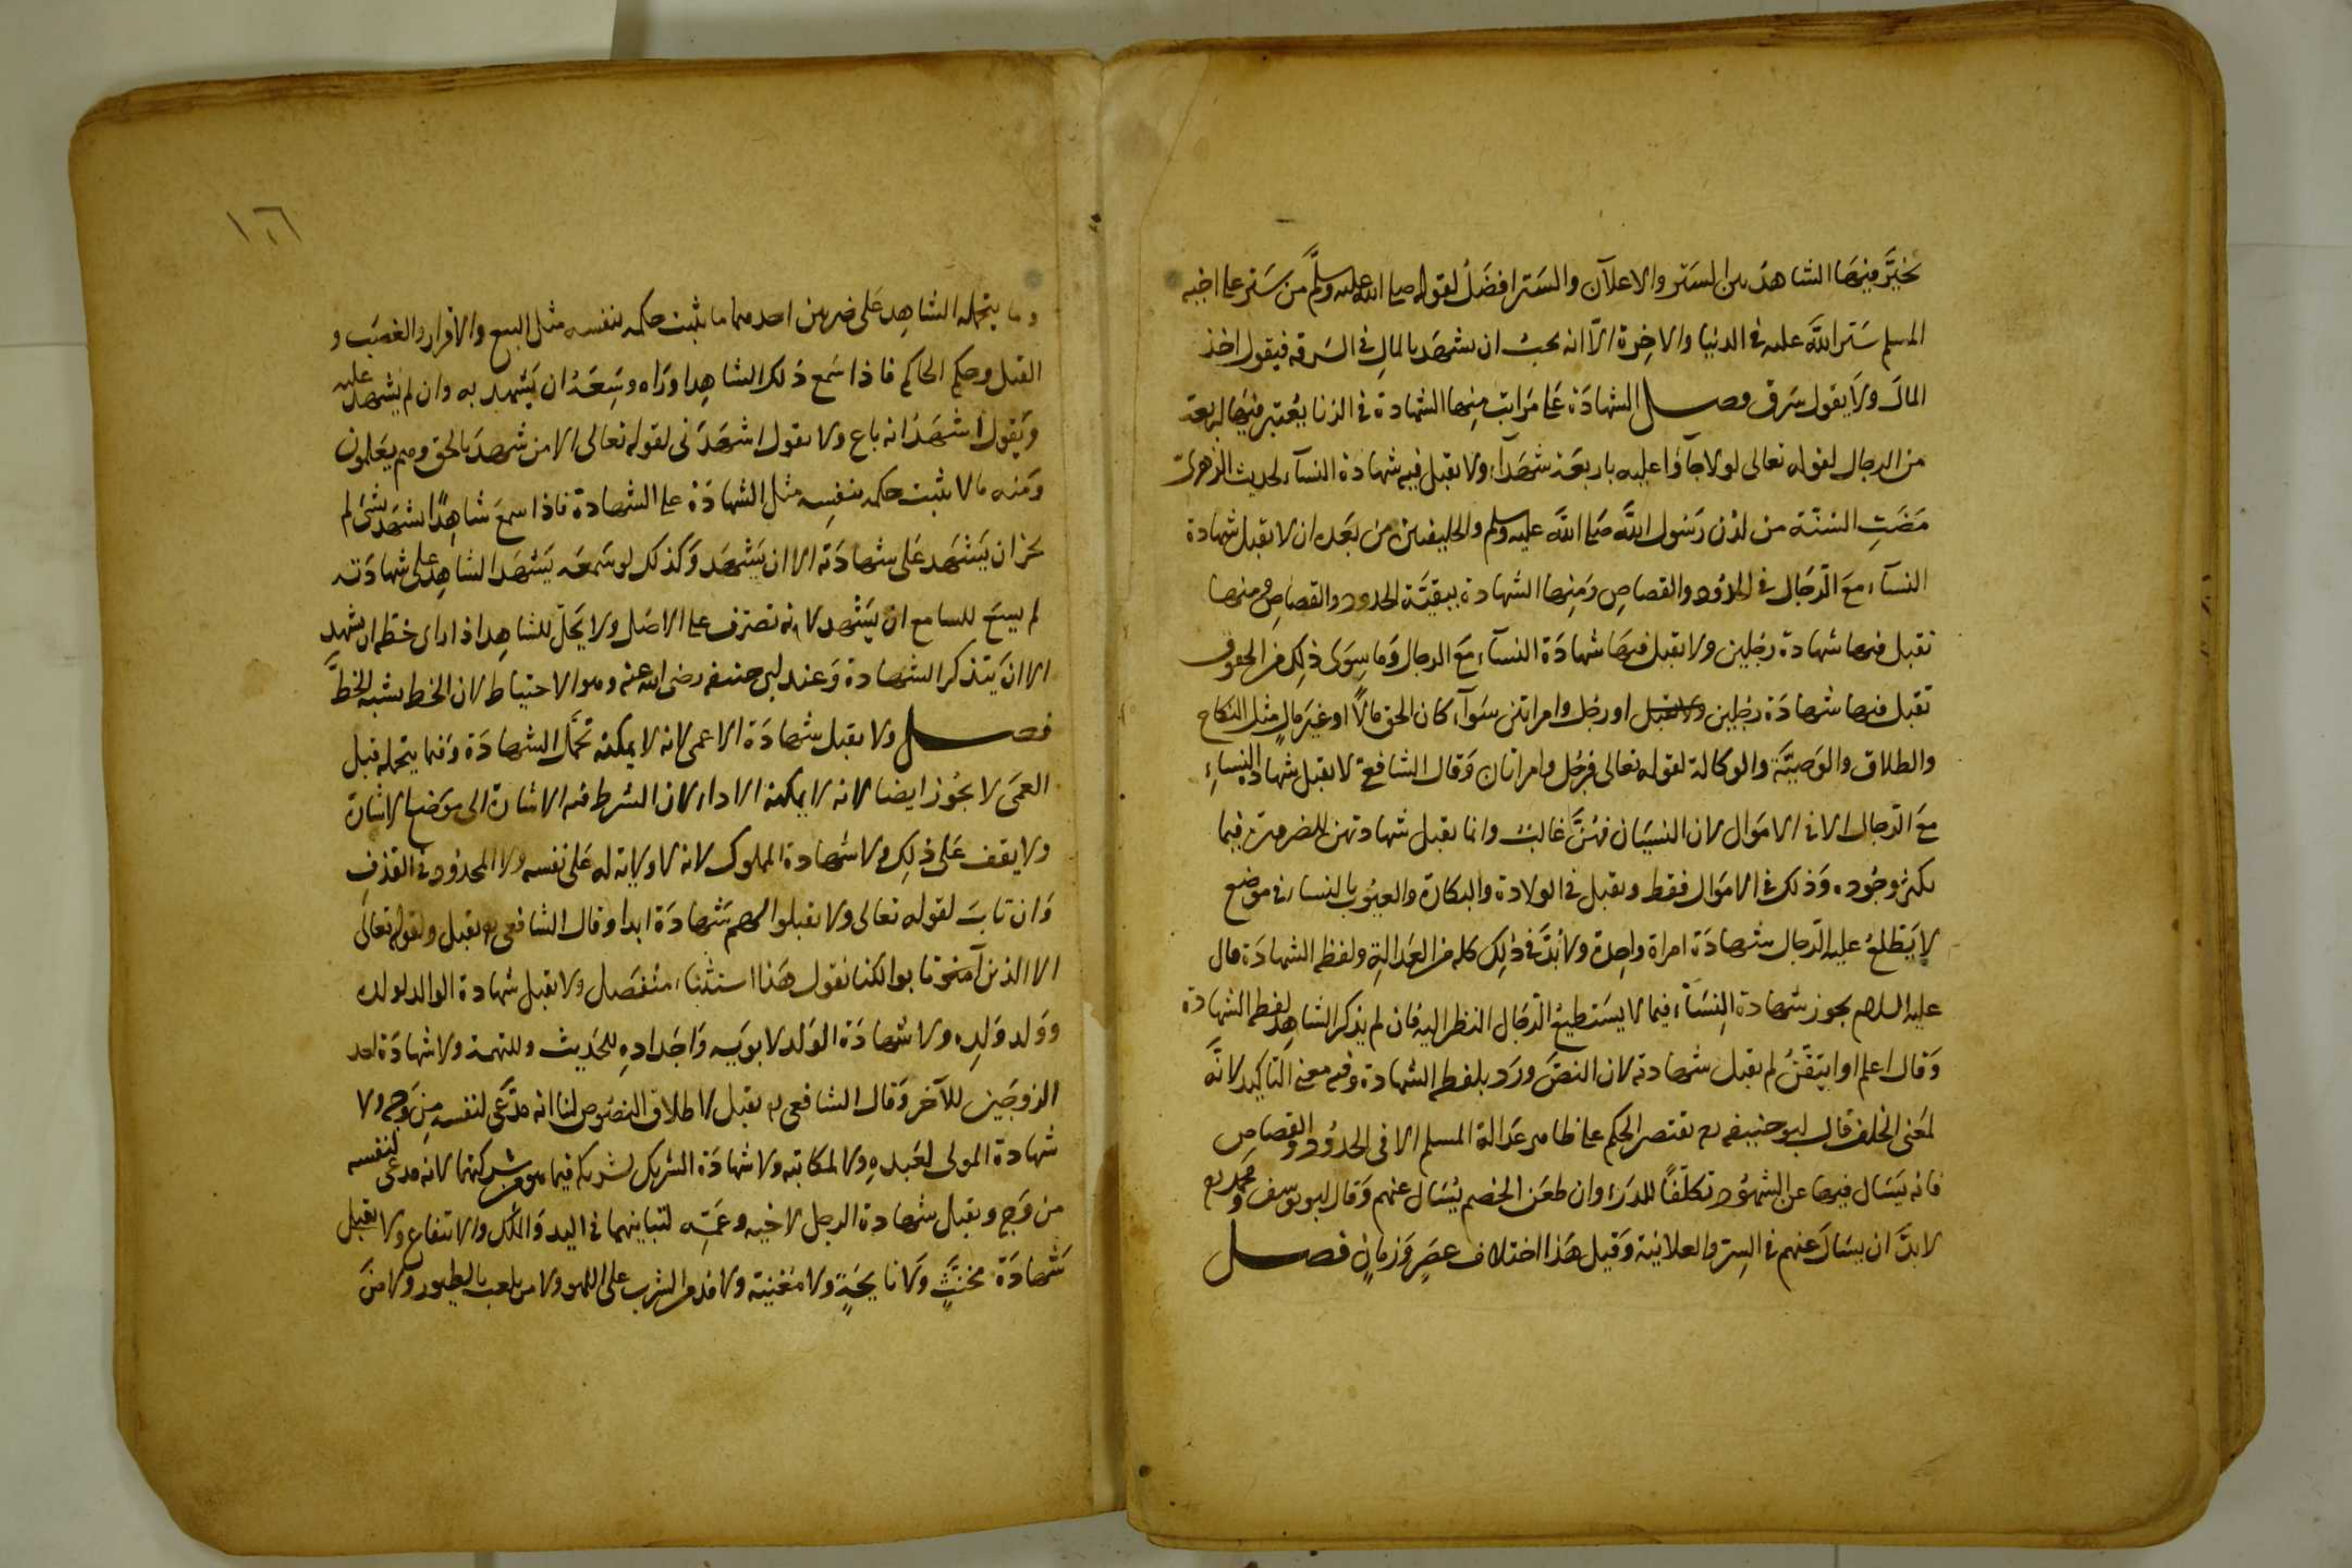 يخيّر فيها الشاهد بين الستر والاعلان والستر افضل لقوله صلى الله عليه وسلم من ستر على اخيه
المسلم ستر الله عليه في الدنيا والاخرة الا انه يجب ان يشهد بالمال في السرقة فيقول اخذ
المال ولا يقول سرق فصل الشهادة على مراتب منها الشهادة في الزنا يعتبر فيها اربعة
من الرجال لقوله تعالى لولا جاؤا عليه باربعة شهداء ولا يقبل فيه شهادة النساء لحديث الزهري
مضت السنة من لدن رسول الله صلى الله عليه وسلم والخليفتين من بعده ان لا تقبل شهادة
النساء مع الرجال في الحدود والقصاص ومنها الشهادة ببقية الحدود والقصاص ومنها
تقبل فيها شهادة رجلين ولا تقبل فيها شهادة النساء مع الرجال وما سوى ذلك من الحقوق
تقبل فيها شهادة رجلين ولا تقبل او رجل وامراتين سواء كان الحق مالا او غير مال مثل النكاح
والطلاق والوصية والوكالة لقوله تعالى فرجل وامراتان وقال الشافعي لا تقبل شهادة النساء
مع الرجال الا في الاموال لان النسيان فهن غالب وانما تقبل شهادتهن للضرورة فيما
يكثر وجوده وذلك في الاموال فقط وتقبل في الولادة والبكارة والعيوب بالنساء في موضع
لا يتطلع عليه الرجال شهادة امراة واحدة ولا بد في ذلك كله من العدالة ولفظ الشهادة قال
عليه السلام يجوز شهادة النساء فيما لا يستطيع الرجال النظر اليه فان لم يذكر الشاهد لفظ الشهادة
وقال اعلم او اتيقن لم تقبل شهادته لان النص ورد بلفظ الشهادة وفيه معنى التاكيد لانه
لمعنى الحلف قال ابو حنيفة رح يقتصر الحاكم على ظاهر عدالة المسلم الا في الحدود والقصاص
فانه يسال فيها عن الشهود تكلفا للدرء وان طعن الخصم يسال عنهم وقال ابو يوسف ومحمد رح
لا بد ان يسال عنهم في السر والعلانية وقيل هذا اختلاف عصر وزمان فصل
١٠٦
وما يتحمله الشاهد على ضربين احدهما ما يثبت حكمه بنفسه مثل البيع والاقرار والغصب و
القتل وحكم الحاكم فاذا سمع ذلك الشاهد او راه وسعه ان يشهد به وان لم يشهد عليه
ويقول اشهد انه باع ولا يقول اشهدني لقوله تعالى الا من شهد بالحق وهم يعلمون
ومنه ما لا يثبت حكمه بنفسه مثل الشهادة على الشهادة فاذا سمع شاهدا يشهد بشئ لم
يجز ان يشهد على شهادته الا ان يشهد وكذلك لو سمعه يشهد الشاهد على شهادته
لم يسع للسامع ان يشهد لانه تصرف على الاصل ولا يحل للشاهد اذا راى خطه ان يشهد
الا ان يتذكر الشهادة وعند ابي حنيفة رضى الله عنه وهو الاحتياط لان الخط يشبه الخط
فصل ولا يقبل شهادة الاعمى لانه لا يمكنه تحمل الشهادة وفيما يتحمله قبل
العمى لا يجوز ايضا لانه لا يمكنه الاداء لان الشرط فيه الاشارة الى موضع الاشارة
ولا يقف على ذلك ولا شهادة المملوك لانه لا ولاية له على نفسه ولا المحدود في القذف
وان تاب لقوله تعالى ولا تقبلوا لهم شهادة ابدا وقال الشافعي رح يقبل ولقوله تعالى
الا الذين تابوا لكنا نقول هذا استثناء منفصل ولا يقبل شهادة الوالد لولده
وولد ولده ولا شهادة الولد لابويه واجداده للحديث وللتهمة ولا شهادة احد
الزوجين للآخر وقال الشافعي رح يقبل لاطلاق النصوص لنا انه مدعي لنفسه من وجه ولا
شهادة المولى لعبده ولا لمكاتبه ولا شهادة الشريك لشريكه فيما هو من شركتهما لانه مدعي لنفسه
من وجه وتقبل شهادة الرجل لاخيه وعمه لتباينهما في اليد والملك والانتفاع ولا يقبل
شهادة مخنث ولا نايحة ولا مغنية ولا مدمن الشرب على اللهو ولا من يلعب بالطيور ولا من